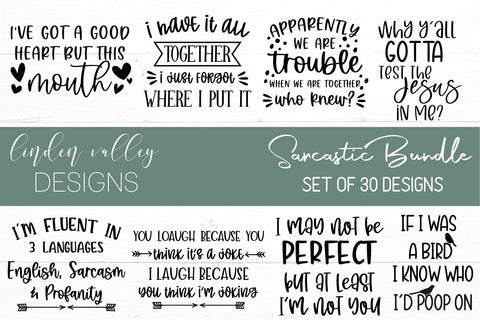 I'VE GOT A GOOD
HEART BUT THIS
mouth
i have it all
TOGETHER
i just forgot
WHERE I PUT IT
APPARENTLY
WE ARE
trouble
WHEN WE ARE TOGETHER
who knew?
Why y'all
GOTTA
TEST THE
Jesus
IN ME?
linden valley
DESIGNS
Sarcastic Bundle
SET OF 30 DESIGNS
I'M FLUENT IN
3 LANGUAGES
English, Sarcasm
& Profanity
YOU LOAUGH BECAUSE YOU
think it's a joke
I LAUGH BECAUSE
you think i'm joking
I may not be
PERFECT
but at least
I'm not you
IF I WAS
A BIRD
I KNOW WHO
I'D POOP ON